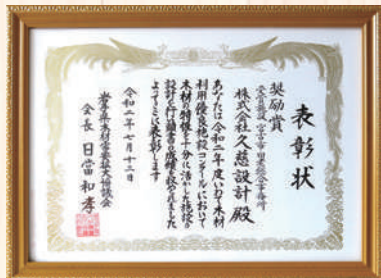 表彰状
奨励賞
受賞施設 宮古市田老総合事務所
株式会社久慈設計殿
あなたは令和二年度いわて木材
利用優良施設コンクールにおいて
木材の特性を十分に活かした施設の
設計を行い顕著の成績を収められました
よってここに表彰します
令和二年七月十三日
岩手県木材需要拡大協議会
会長 日當和孝